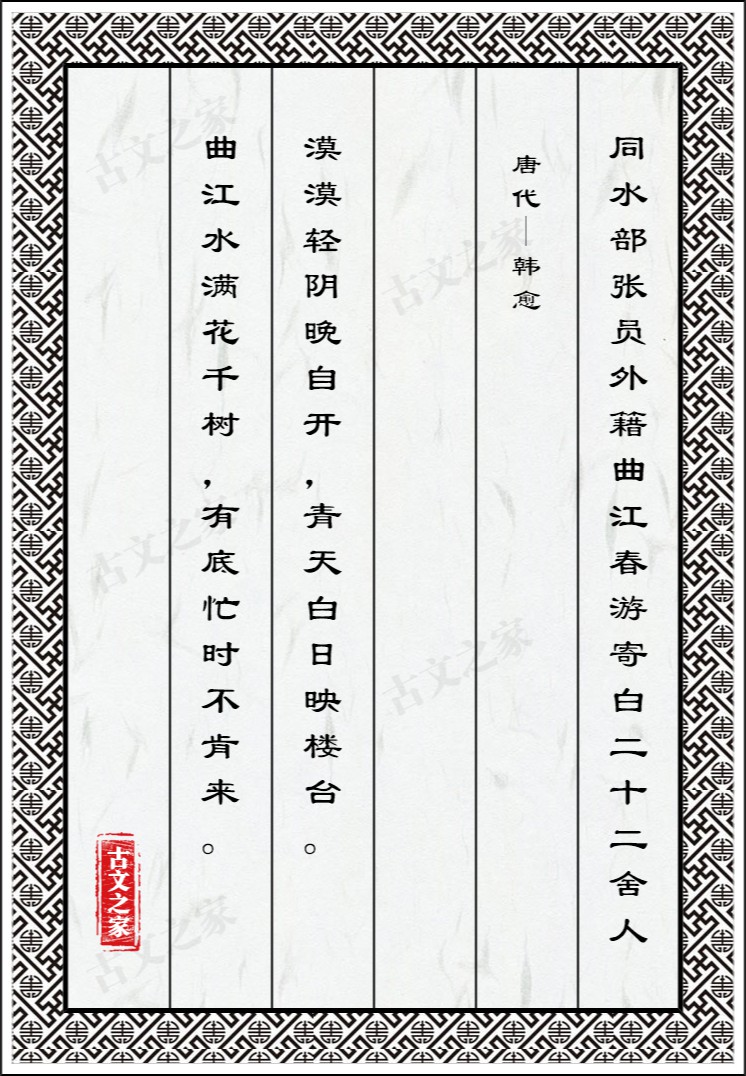 同水部张员外籍曲江春游寄白二十二舍人
唐代—韩愈
漠漠轻阴晚自开，青天白日映楼台。
曲江水满花千树，有底忙时不肯来。
古文之家
古文之家
古文之家
古文之家
古文之家
古文之家